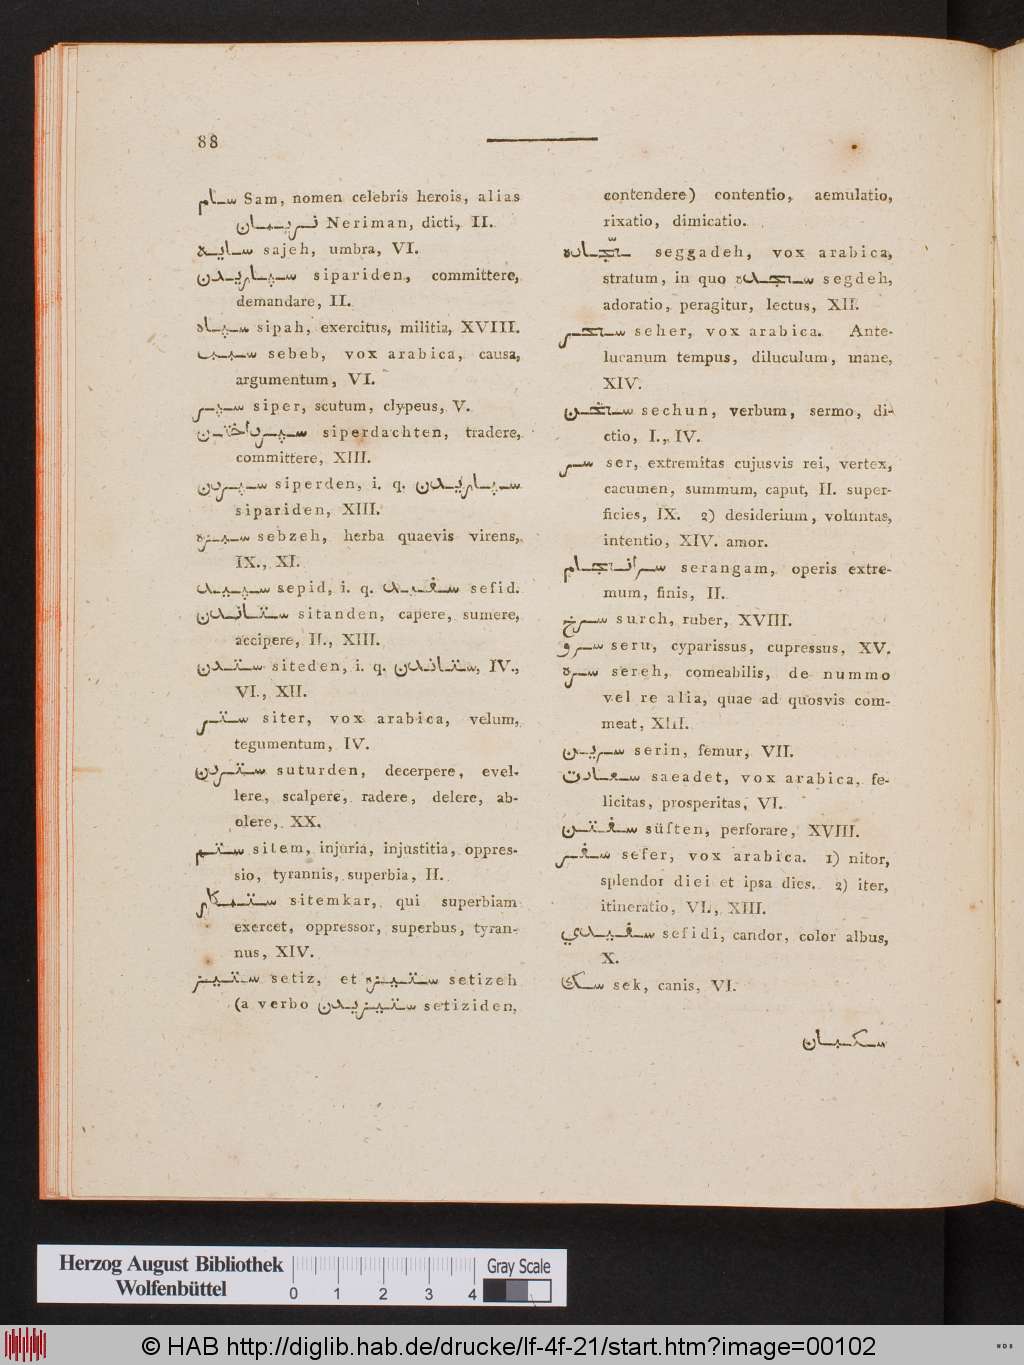 88
سام Sam, nomen celebris herois, alias
نريمان Neriman, dicti, II.
سايه sajeh, umbra, VI.
سپاريدن sipariden, committere,
demandare, II.
سپاه sipah, exercitus, militia, XVIII.
سبب sebeb, vox arabica, causa,
argumentum, VI.
سپر siper, scutum, clypeus, V.
سپرداختن siperdachten, tradere,
committere, XIII.
سپردن siperden, i. q. سپاريدن
sipariden, XIII.
سبزه sebzeh, herba quaevis virens,
IX., XI.
سپيد sepid, i. q. سفيد sefid.
ستاندن sitanden, capere, sumere,
accipere, II., XIII.
ستدن siteden, i. q. ستاندن, IV.,
VI., XII.
ستر siter, vox arabica, velum,
tegumentum, IV.
ستردن suturden, decerpere, evel-
lere, scalpere, radere, delere, ab-
olere, XX.
ستم sitem, injuria, injustitia, oppres-
sio, tyrannis, superbia, II.
ستمكار sitemkar, qui superbiam
exercet, oppressor, superbus, tyran-
nus, XIV.
ستيز setiz, et ستيزه setizeh
(a verbo ستيزيدن setiziden,
contendere) contentio, aemulatio,
rixatio, dimicatio.
سجّاده seggadeh, vox arabica,
stratum, in quo سجده segdeh,
adoratio, peragitur, lectus, XII.
سحر seher, vox arabica. Ante-
lucanum tempus, diluculum, mane,
XIV.
سخن sechun, verbum, sermo, di-
ctio, I., IV.
سر ser, extremitas cujusvis rei, vertex,
cacumen, summum, caput, II. super-
ficies, IX. 2) desiderium, voluntas,
intentio, XIV. amor.
سرانجام serangam, operis extre-
mum, finis, II.
سرخ surch, ruber, XVIII.
سرو seru, cyparissus, cupressus, XV.
سره sereh, comeabilis, de nummo
vel re alia, quae ad quosvis com-
meat, XIII.
سرين serin, femur, VII.
سعادت saeadet, vox arabica, fe-
licitas, prosperitas, VI.
سفتن süften, perforare, XVIII.
سفر sefer, vox arabica. 1) nitor,
splendor diei et ipsa dies. 2) iter,
itineratio, VI., XIII.
سفيدي sefidi, candor, color albus,
X.
سك sek, canis, VI.
سكبان
Herzog August Bibliothek
Wolfenbüttel
0 1 2 3 4
Gray Scale
© HAB http://diglib.hab.de/drucke/lf-4f-21/start.htm?image=00102